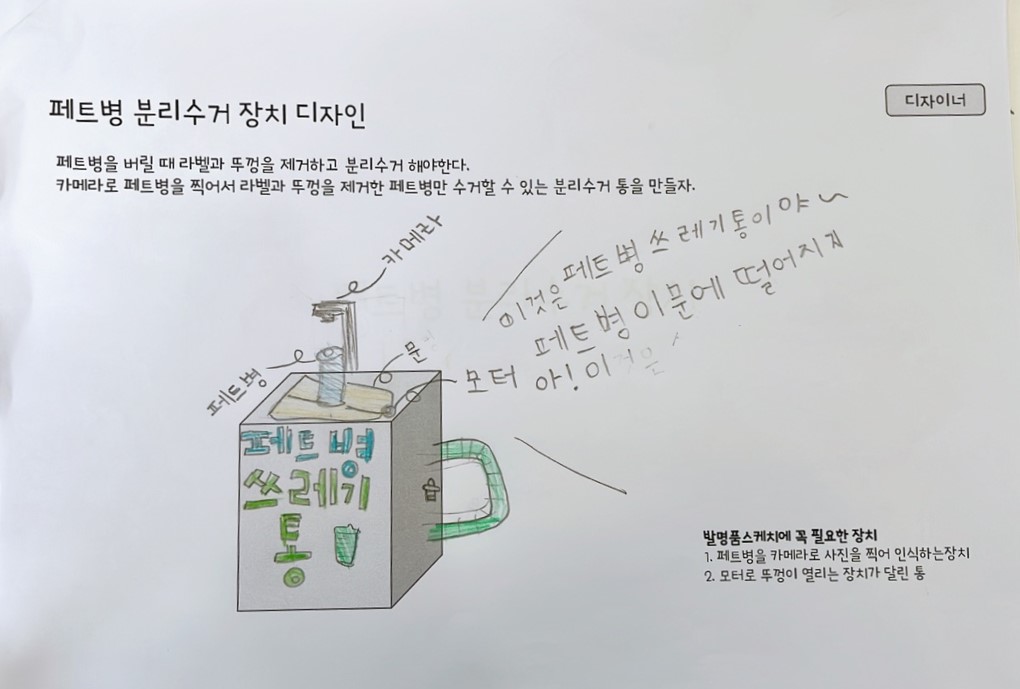 페트병 분리수거 장치 디자인
디자이너
페트병을 버릴 때 라벨과 뚜껑을 제거하고 분리수거 해야한다.
카메라로 페트병을 찍어서 라벨과 뚜껑을 제거한 페트병만 수거할 수 있는 분리수거 통을 만들자.
카메라
이것은 페트병 쓰레기통이야~
페트병 이문에 떨어지지
아! 이것은
문
페트병
모터
페트병
쓰레기
통
발명품스케치에 꼭 필요한 장치
1. 페트병을 카메라로 사진을 찍어 인식하는장치
2. 모터로 뚜껑이 열리는 장치가 달린 통